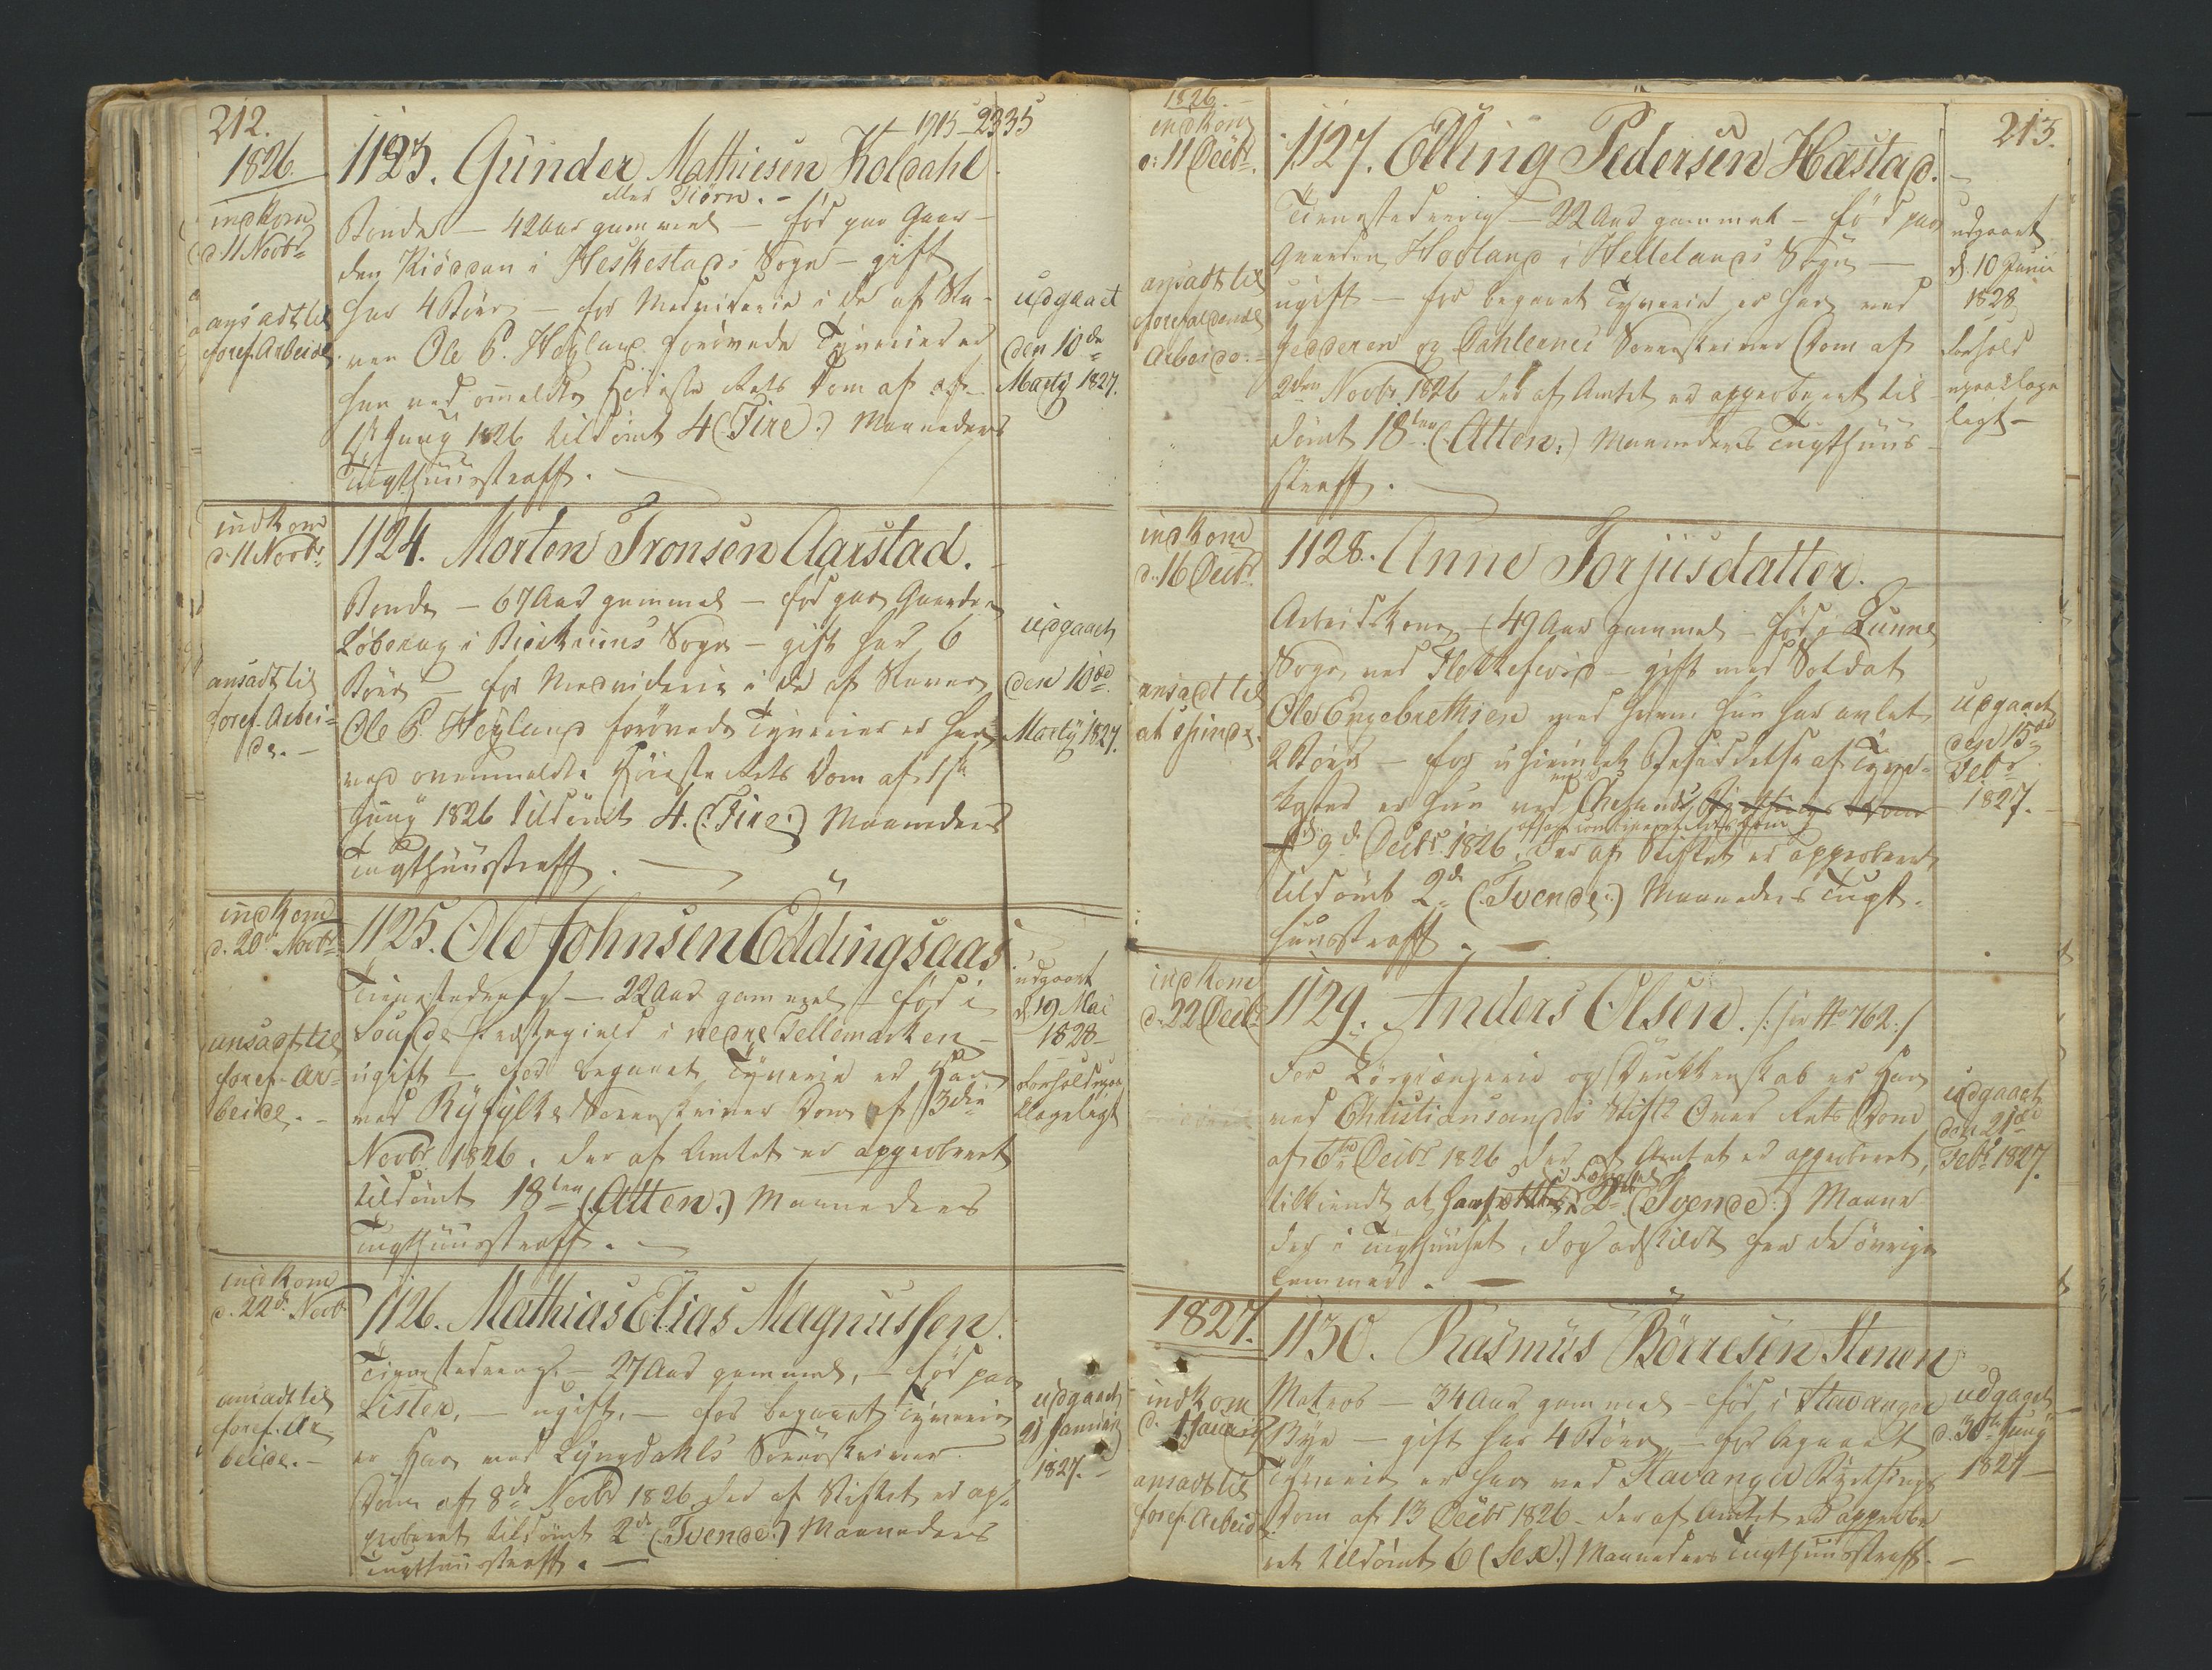 212.
1826.
indkom
d. 11 Novbr
ansadt til
foref. Arbeide.
1915-2335
1123. Gunder Mathiesen Koldahl
eller Tiörn. -
Bonde - 42 Aar gammel - fød paa Gaar-
den Kiøddan i Heskestads Sogn - gift
har 4 Börn - for Medvidenie i de af Sla-
ven Ole P. Høyland forövede Tyverier er
han ved ommeldte Höieste Rets Dom af
1st Juny 1826 tildömt 4 (Fire:) Maaneders
Tugthuusstraff. -
udgaaet
den 10de
Marty 1827.
indkom
d. 11 Novbr
ansadt til
foref. Arbei-
de. -
1124. Morten Tronsen Aarstad. -
Bonde - 67 Aar gammel - fød paa Gaarden
i Bierkreims Sogn - gift har 6
Börn - for Medvidenie i de af Slaven
Ole P. Høyland forövede Tyverier er han
ved ovenmeldte Höieste Rets Dom af 1ste
Juny 1826 tildömt 4. (Fire:) Maaneders
Tugthuusstraff. -
udgaaet
den 10de
Marty 1827.
indkom
d. 20de Novbr
ansadt til
foref. Ar-
beide. -
1125. Ole Johnsen Eddingsaas
Tienestedreng - 22 Aar gammel - fød i
Præstegield i nedre Tellemarken -
ugift - for begaaet Tyverie er Han
ved Ryfylke Sorenskriver Dom af 3die
Novbr 1826. der af Amtet er approberet
tildömt 18ten (Atten:) Maaneders
Tugthuusstraff. -
udgaaet
d. 19 Mai
1828 -
forhold upaa
klageligt
indkom
d. 22de Novb
ansadt til
foref. Ar
beide. -
1126. Mathias Elias Magnussen.
Tienestedreng - 27 Aar gammel, - fød paa
Lister, - ugift, - for begaaet Tyverie
er Han ved Lyngdahls Sorenskriver
Dom af 8de Novbr 1826 der af Stiftet er ap-
proberet tildömt 2de (Tvende:) Maaneders
Tugthuusstraff. -
udgaaet
21 January
1827. -
1826. -
indkom
d: 11 Decbr.
ansadt til
forefaldende
Arbeide. -
213.
1127. Elling Pedersen Hæstad. -
Tienestedreng - 22 Aar gammel - fød paa
Gaarden Hovland i Hellelands Sogn -
ugift - for begaaet Tyverie er han ved
Jedderen og Dahlernes Sorenskriver Dom af
2den Novbr. 1826 der af Amtet er approberet til
dömt 18ten (Atten:) Maaneders Tugthuus-
straff. -
udgaaet
d. 10 Junii
1828
forhold
upaaklage
ligt -
indkom
d. 16 Decbr
ansadt til
at spinde.
1128. Anne Torjusdatter. -
Arbeidskone - 49 Aar gammel - fød i Lunne
Sogn ved Flekkefiord - gift med Soldat
Ole Engebrethsen med hvem hun har avlet
2 Börn - for Besiddelse af Tyve-
koster er hun ved
af 9de Decbr. 1826, der af Stiftet er approberet
tildömt 2de (Tvende:) Maaneders Tugt-
huusstraff. -
udgaaet
den 15de
Febr
1827. -
indkom
d. 22 Decbr
1129. Anders Olsen. /: see No 762. :/
For Lösgiængerie og Drukkenskab er Han
ved Christiansands Stifts Over Rets Dom
af 6te Decbr 1826 der af Amtet er approberet,
tilkiendt at hensættes 2de (Tvende:) Maane
der i Tugthuuset, dog adskildt fra de övrige
Lemmer. -
udgaaet
den 21de
Febr 1827.
1827.
indkom
d. 1 January
ansadt til
foref. Arbeide
1130. Rasmus Börresen Stenen
Matros - 34 Aar gammel - fød i Stavanger
Bye - gift har 4 Börn - for begaaet
Tyverie er han ved Stavanger Byethings
Dom af 13 Decbr 1826 - der af Amtet er approbe
ret tildömt 6 (Sex:) Maaneders Tugthuusstraff. -
udgaaet
d. 30te Juny
1827 -